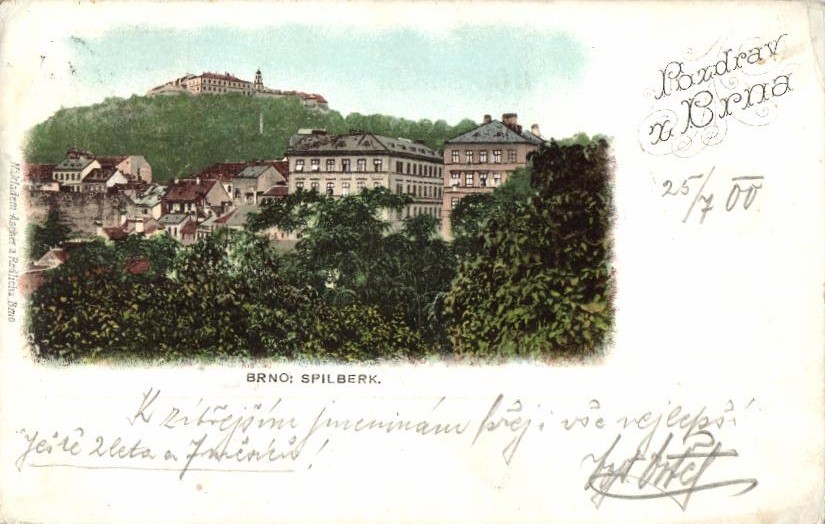 Pozdrav
z Brna
25/7 00
Nákladem Ascher a Redlich, Brno
BRNO: SPILBERK.
K zítřejším jmeninám přeji vše nejlepší
Ještě 2 leta a 7 měsíců!